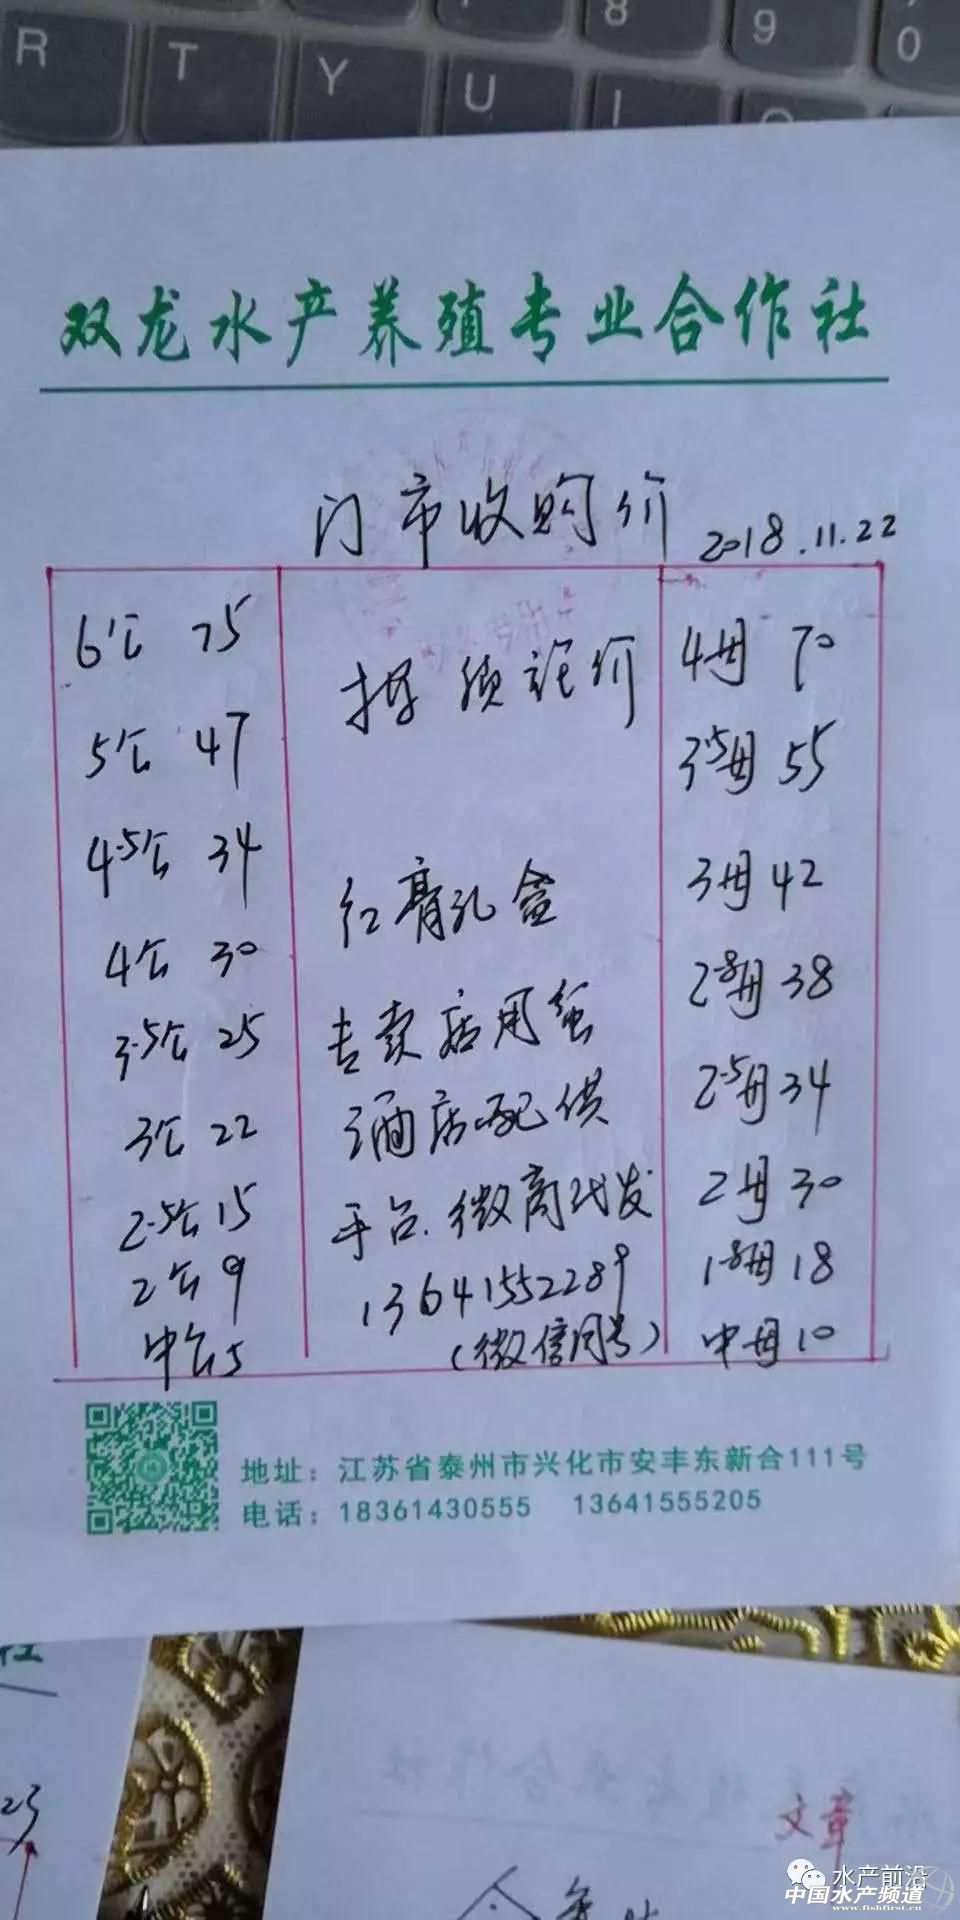 R T Y U I
8 9 0
双龙水产养殖专业合作社
门市收购价 2018.11.22
6公 75
5公 47
4.5公 34
4公 30
3.5公 25
3公 22
2.5公 15
2公 9
中公5
红膏礼盒
专卖店用蟹
酒店配供
平台.微商代发
13641552289
(微信同号)
4母 70
3.5母 55
3母 42
2.8母 38
2.5母 34
2母 30
1.8母 18
中母 10
地址：江苏省泰州市兴化市安丰东新合111号
电话：18361430555 13641555205
文章
水产前沿
中国水产频道
www.fishfirst.cn